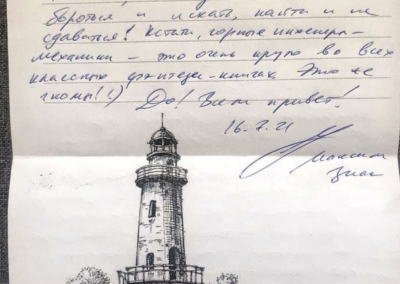 бороться и искать, найти и не
сдаваться! Кстати, горные инженера-
механики – это очень круто во всех
классных фэнтези-книгах. Это же
гномы!!:) До! Всем привет!
16.7.21
Максим